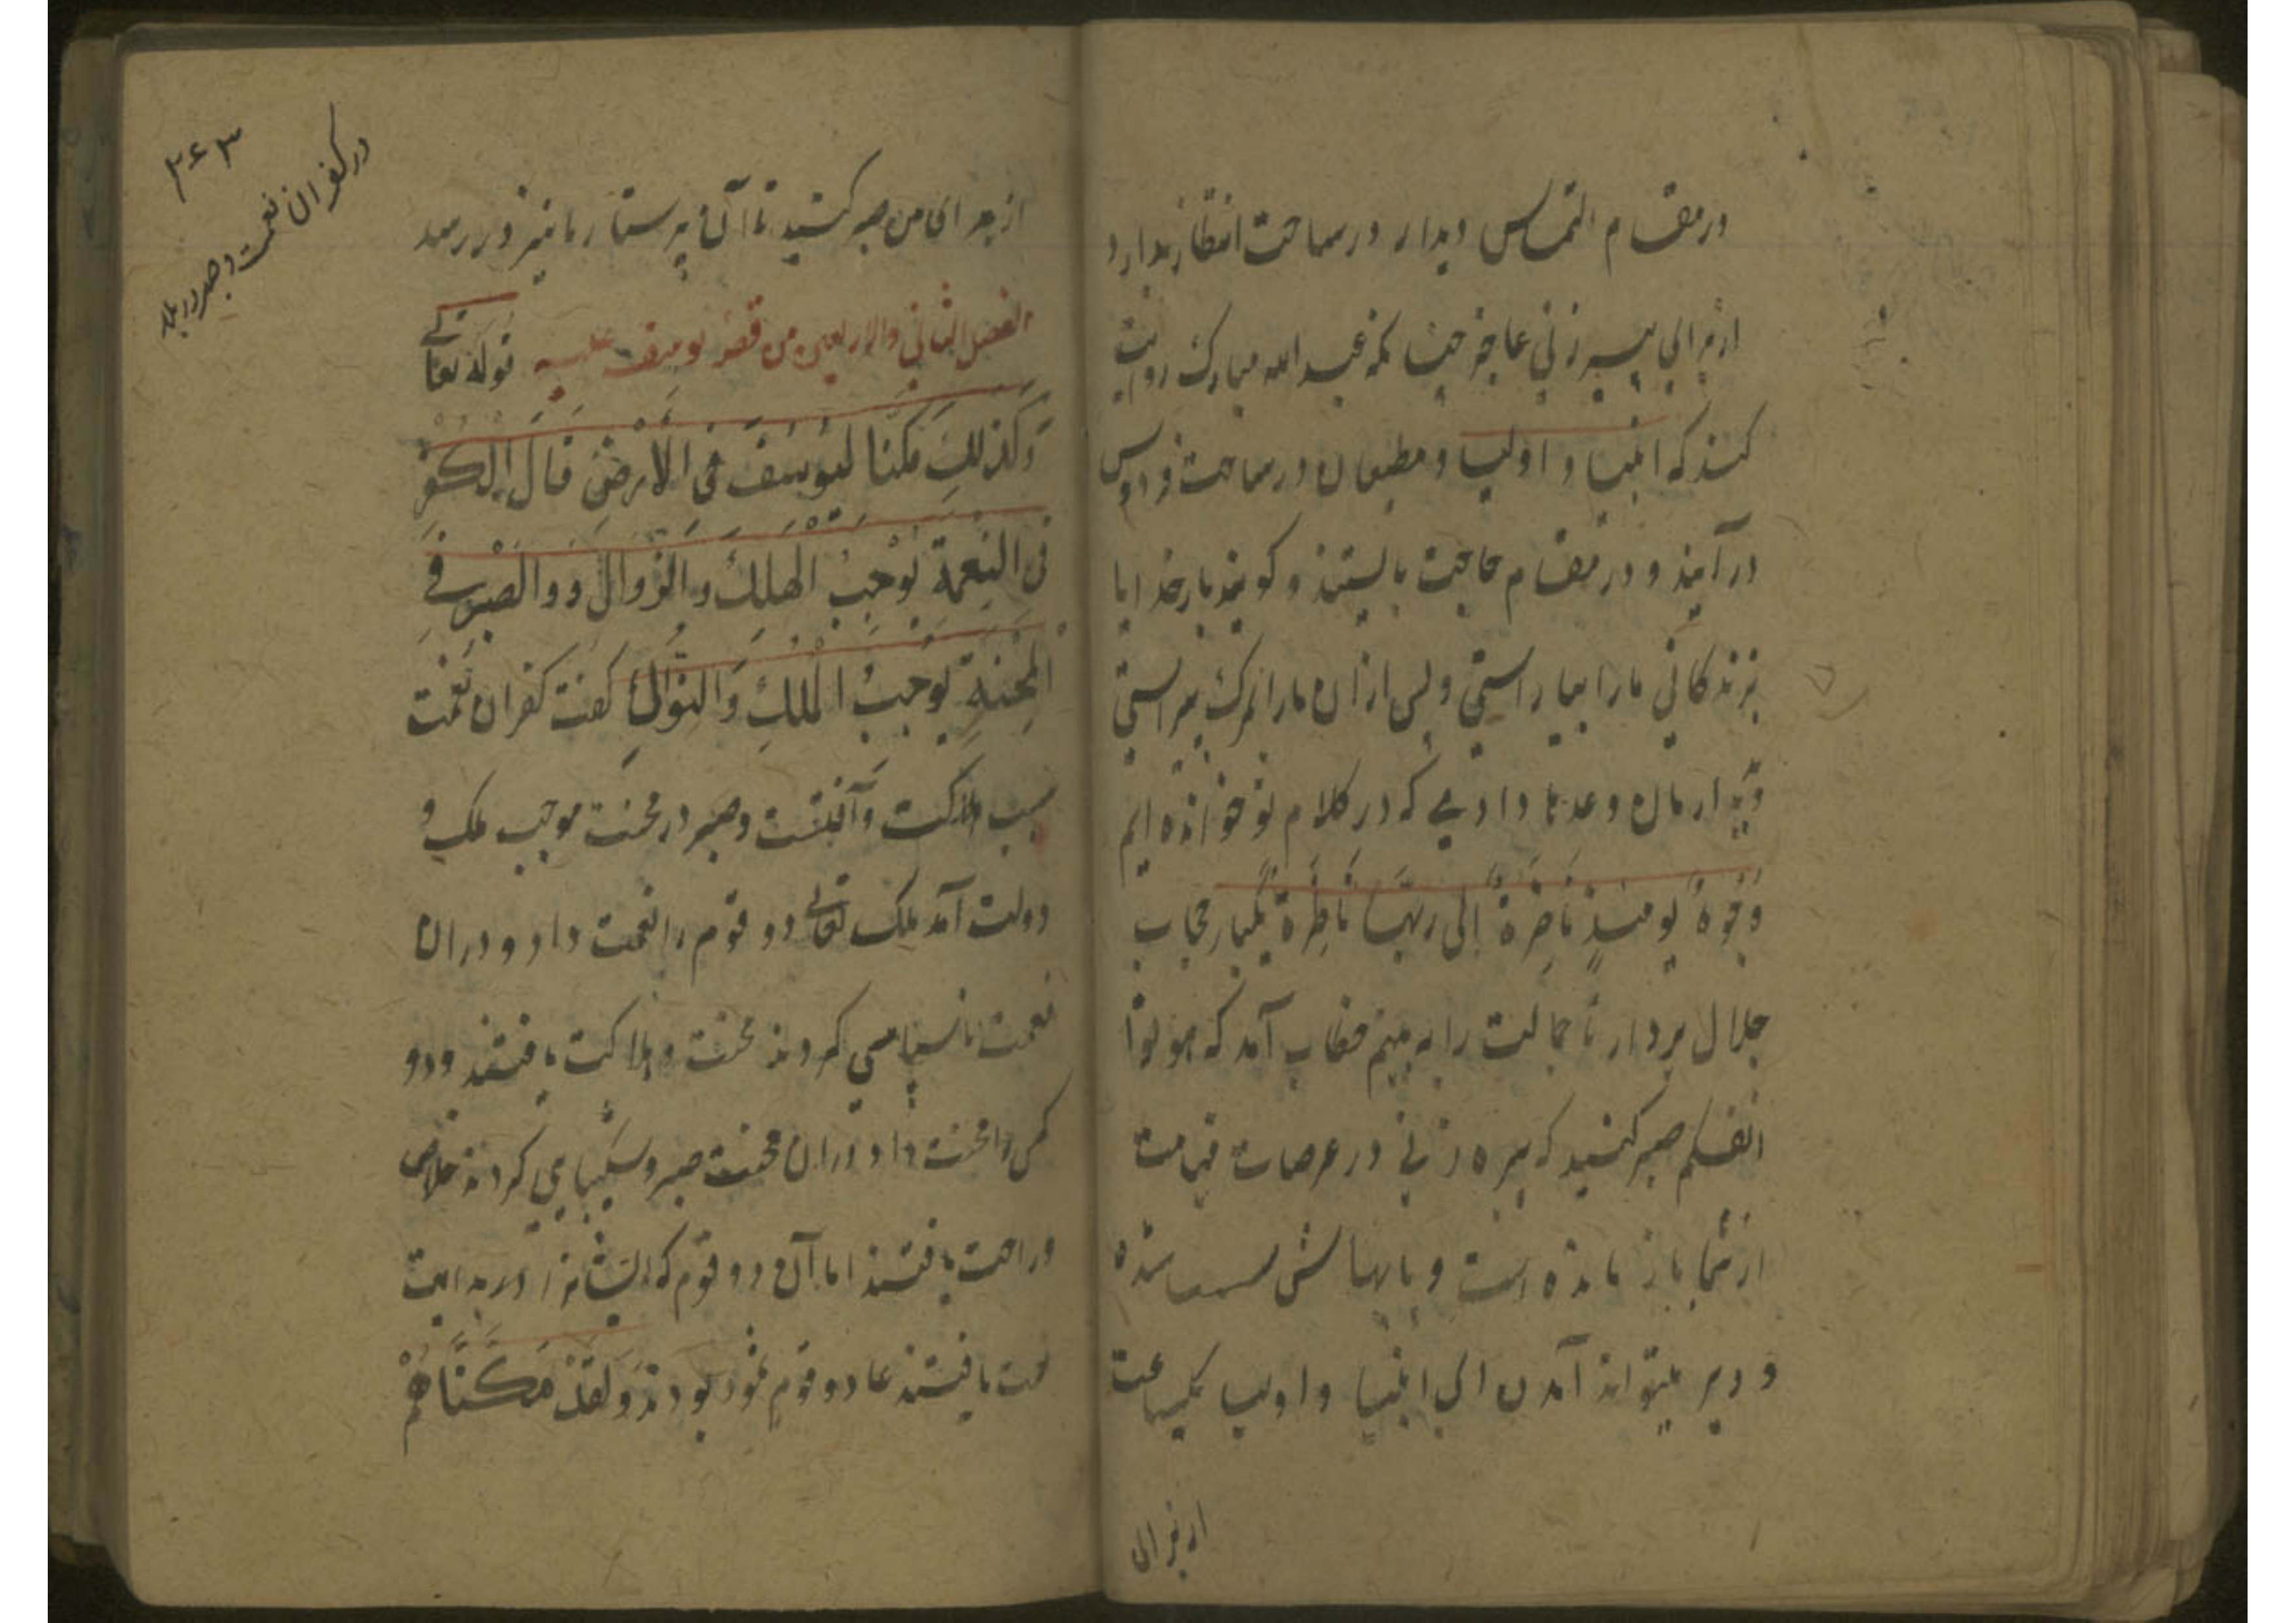 در مقام التماس دیدار در ساحت انتظار بدارد
از برای پیر زنی عاجزه چنانکه عبد الله مبارک روایت
کند که انبیا و اولیا و مطیعان در ساحت فردوس
در آیند و در مقام حاجت بایستند و کویند بار خدایا
بزندکانی مارا بیاراستی و پس ازان مارا بمرک بپیراستی
و دیدارمان وعدها دادی که در کلام تو خوانده ایم
وُجُوهٌ یَومَئِذٍ نَاضِرَةٌ إِلٰی رَبِّهَا نَاظِرَةٌ یکبار حجاب
جلال بردار تا جمالت را به بینم خطاب آمد که
انفسکم صبر کنید که پیره زنی در عرصات قیامت
از شما باز مانده است و پایهاش سست شده
و دیر میتواند آمدن ای انبیا و اولیا یکساعت
از برای
۳۶۳
در کفران نعمت و صبر در بلا
از برای من صبر کنید تا آن پرستار ما نیز در رسد
الفصل الثانی والاربعین من قصهٔ یوسف علیه قوله تعالی
وَکَذٰلِکَ مَکَّنَّا لِیُوسُفَ فِی الْاَرْضِ قَالَ الْکُفْرُ
فِی النِعْمَةِ یُوْجِبُ الْهَلَکَ وَالزَّوَالَ وَ وَالصَّبْرُ فِی
الْمِحْنَةِ یُوجِبُ الْمُلْکَ وَالنَّوَالَ کفت کفران نعمت
سبب هلاکت و آفتست و صبر در محنت موجب ملک و
دولت آمد ملک تعالی دو قوم را نعمت داد و دران
نعمت ناسپاسی کردند محنت و هلاکت یافتند و دو
کس را محنت داد و دران محنت صبر و شکیبایی کردند خلاص
و راحت یافتند اما آن دو قوم که ایشانرا در بدایت
نعمت یافتند عاد و قوم ثمود بودند وَلَقَدْ مَکَّنَّاهُمْ